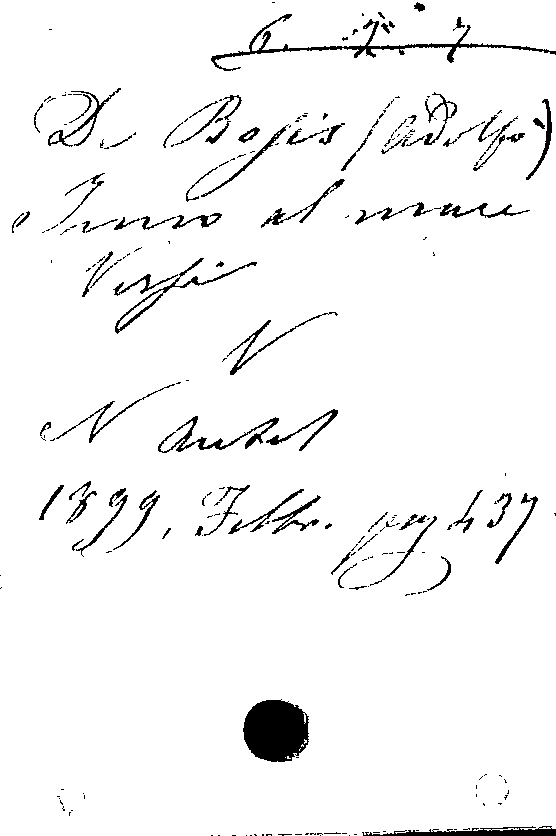 6. 7. 7
De Bosis (Adolfo)
Inno al mare
Versi
V
N Antol
1899, Febbr. pag 437